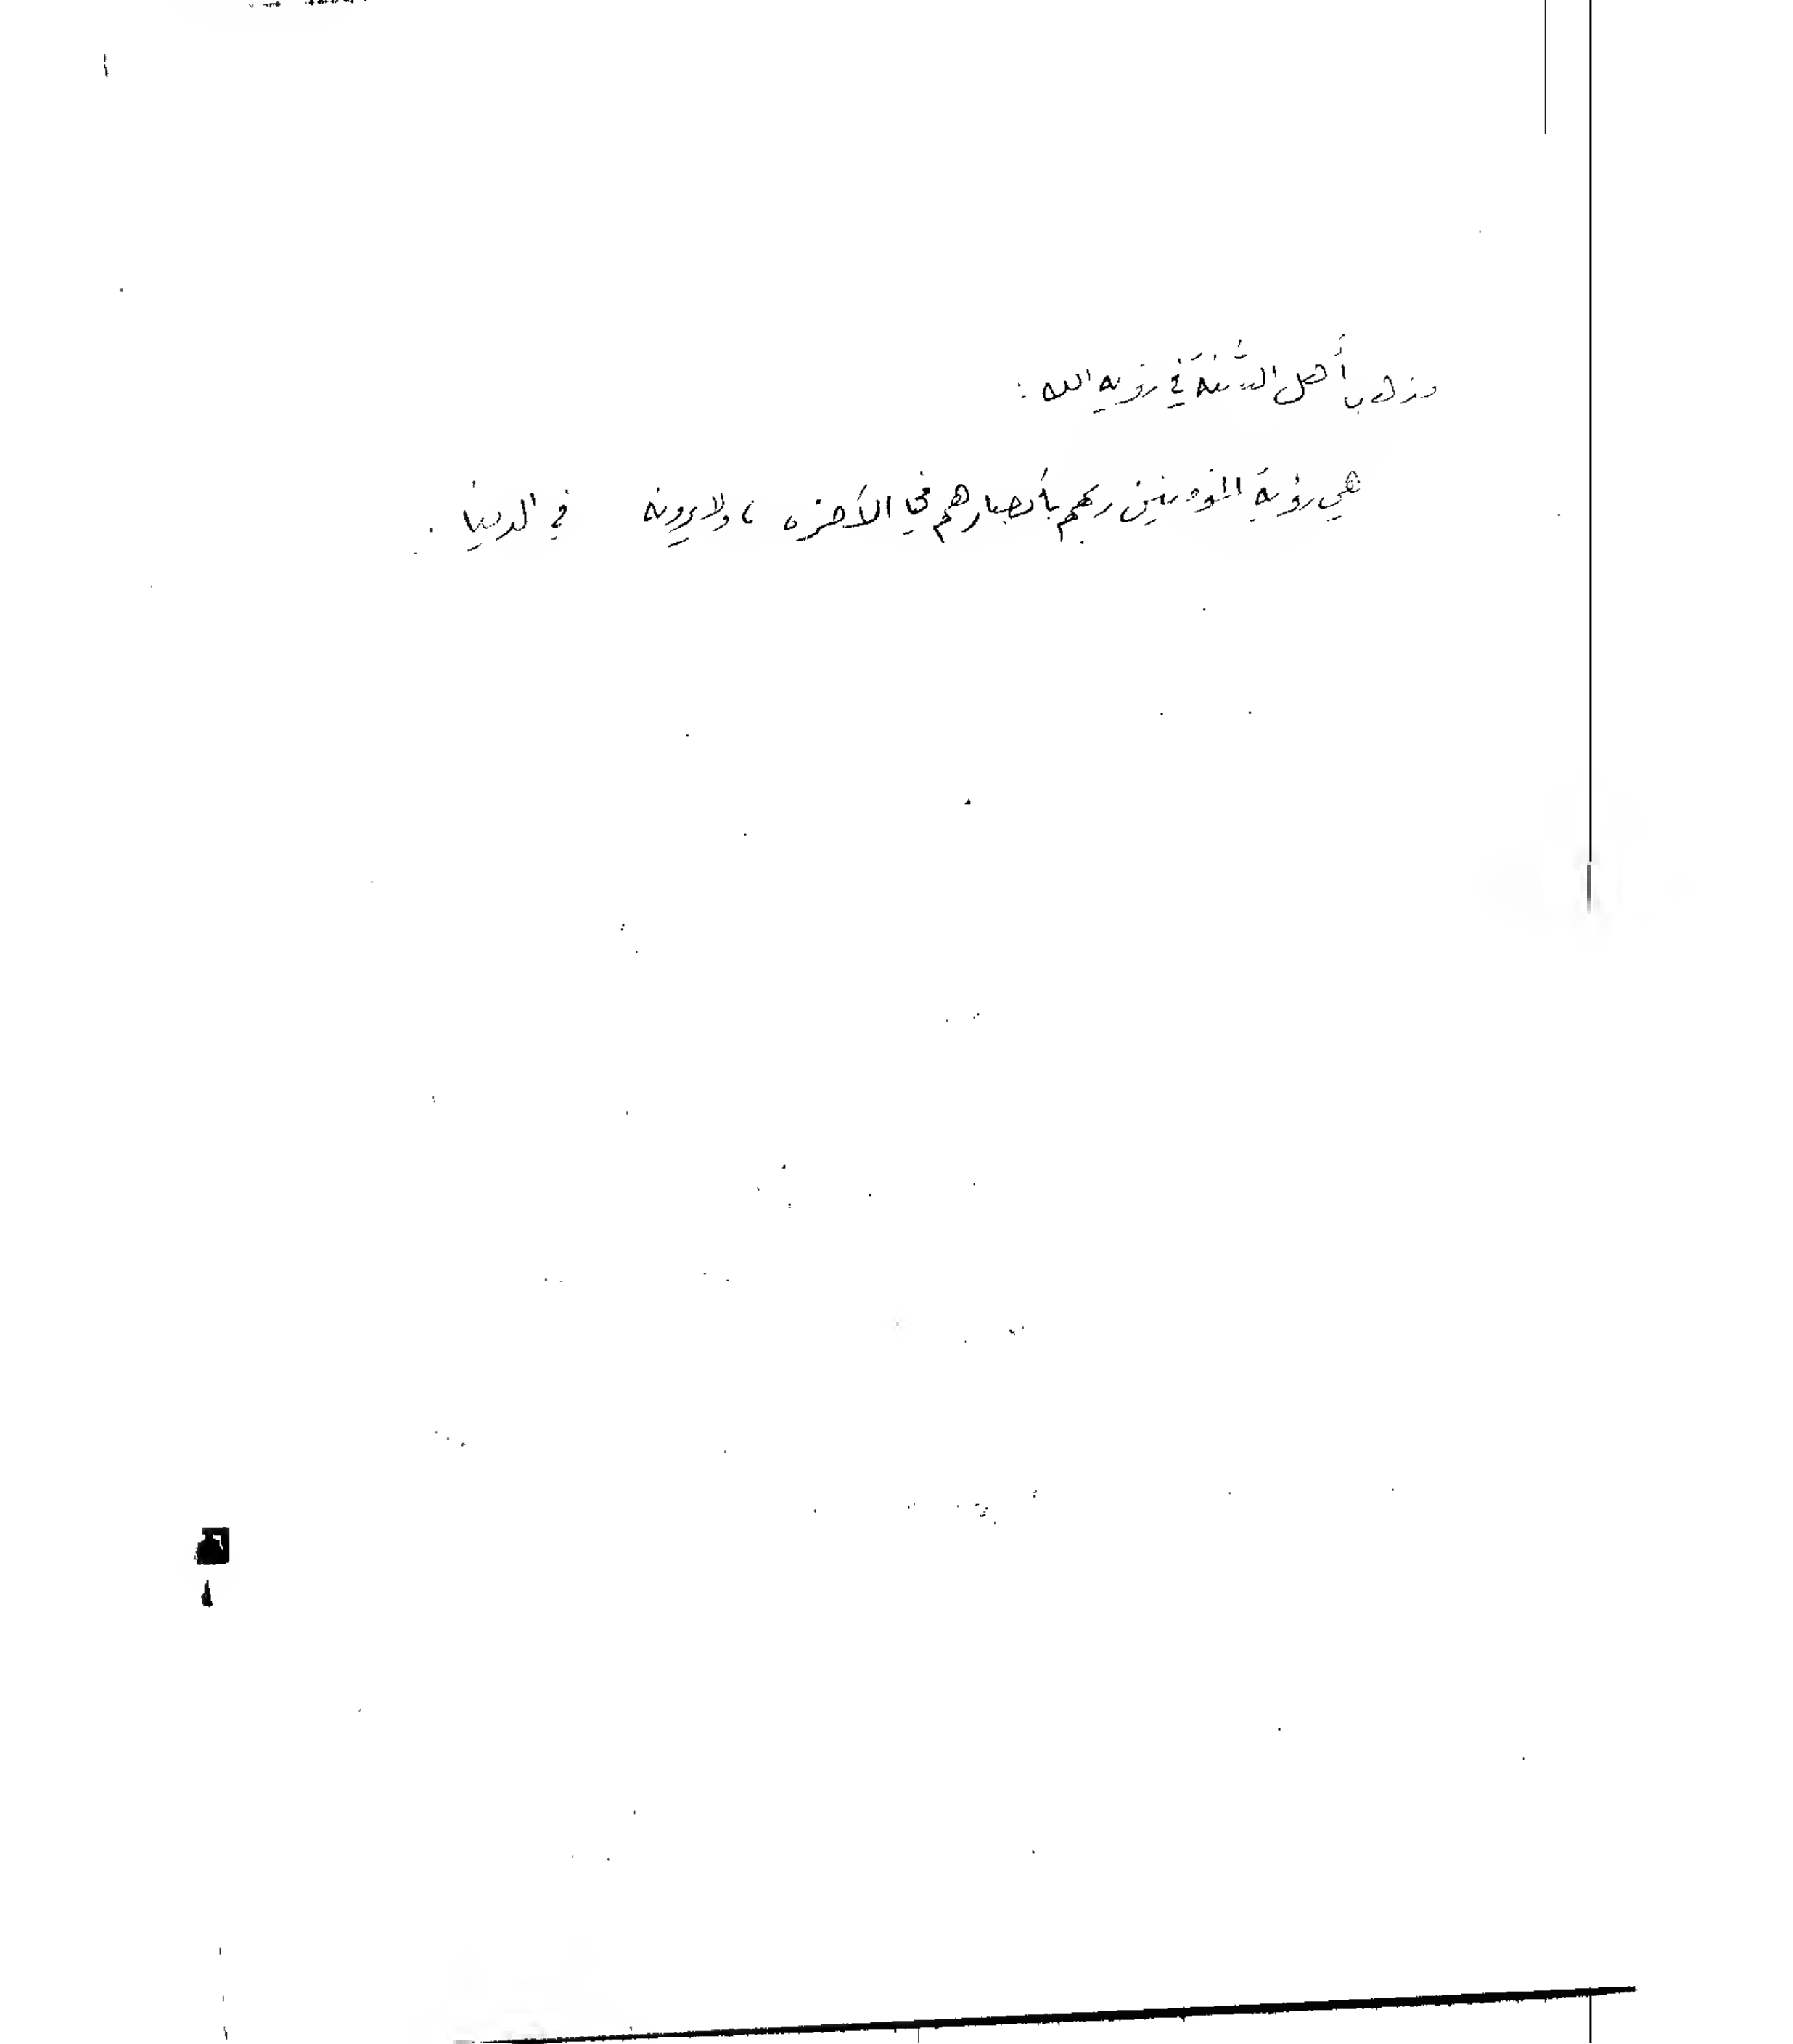 مذهب أهل السُّنَّة في رؤية الله :
هي رؤية المؤمنين ربهم بأبصارهم في الآخره ، ولا يرونه في الدنيا .